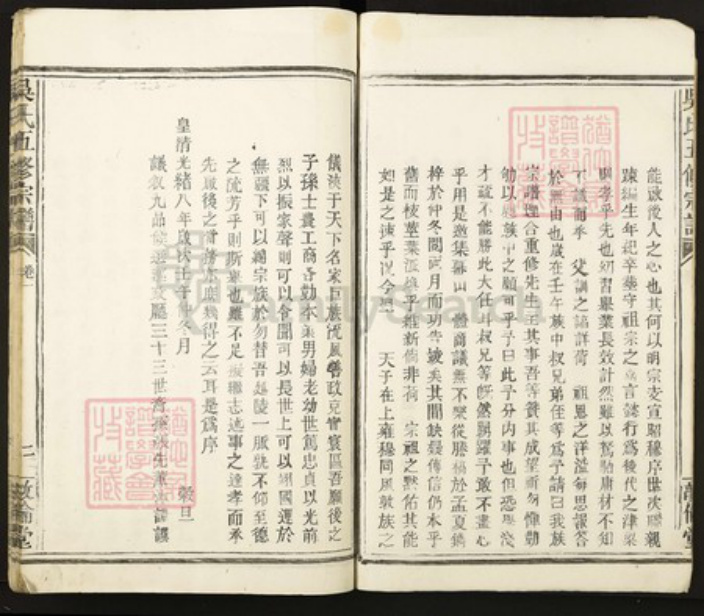 吳氏五修宗譜
敦倫堂
能啟後人之心也其何以明宗支宣昭穆序世次聯親
疎編生年紀卒塟守祖宗之嘉言懿行爲後代之津梁
與孝乎先也幼習舉業長效計然雖以駑駘庸材不知
不識而乎 父訓之諄詳荷 祖恩之洋溢每思報答
於無由也歲在壬午族中叔兄弟侄等爲予請曰我族
宗譜理合重修先生主其事吾等贊其成望祈勿憚勤
劬以慰族中之願可乎予曰此予分內事也但恐學淺
才疏不能勝此大任叔兄等旣然勷躍予敢不盡心
乎用是邀集 體商議無不樂從謄稿於孟夏鐫
梓於仲冬閱 月而功告竣矣其間缺疑傳信仍本乎
舊而枝葉派 平維新倘非荷 宗祖之默佑其能
如是之速乎 今 天子在上雍穆同風敦族之
儀浹于天下名家巨族流風善政克 寰區吾願後之
子孫士農工商各効本業男婦老幼世篤忠貞以光前
烈以振家聲則可以令聞可以長世上可以翊國運於
無疆下可以綿宗族於勿替吾延陵一脈號不仰至德
之流芳乎則斯舉也雖不足 繼志述事之達孝而承
先啟後之 務亦庶幾得之云耳是爲序
皇清光緒八年歲次壬午仲冬月 穀旦
議敘九品 廳三十三世 孫 先 譔
吳氏五修宗譜
卷一
二
敦倫堂